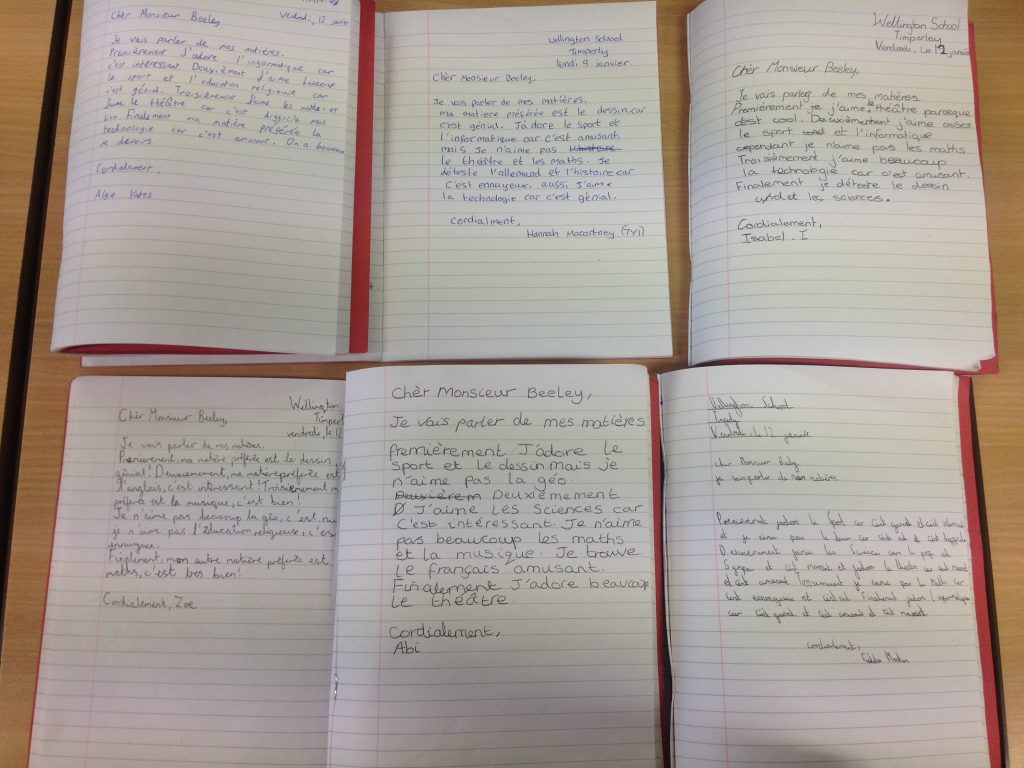 Chèr Monsieur Beeley
Vendredi, 12 janvier
Je vais parler de mes matières.
Premièrement j'adore l'informatique car
c'est intéressant. Deuxièment j'aime beaucoup
le sport et l'education religieuse car
c'est génial. Troisièrement j'aime les maths et
j'aime le théâtre car c'est difficile mais
finalement ma matière préférée la
technologie car c'est amusant. On a beaucoup
de devoirs.
Cordialement,
Alfie Yates
Wellington School
Timperley
lundi 9 janvier.
Chèr Monsieur Beeley,
Je vais parler de mes matières.
ma matiece présérée est le dessin car
c'est génial. J'adore le sport et
l'informatique car c'est amusant
mais je n'aime pas l'histoire
le théâtre et les maths. Je
déteste l'allemand et l'histoire car
c'est ennuyeux, aussi j'aime
la technologie car c'est génial.
Cordialment,
Hannah Macartney (7Y1)
Wellington School
Timperley
Vendredi. Le 12 janvier
Chèr Monsieur Beeley,
Je vais parler de mes matières.
Premièrement je j'aime le théâtre parceque
c'est cool. Deuxièmement j'aime assez
le sport et l'informatique
cependant je n'aime pas les maths.
Troisièmement j'aime beaucoup
la technologie car c'est amusant.
Finalement je déteste le dessin
et les sciences.
Cordialement,
Isabel. I
Wellington
Timperl
vendredi, le 12
Chèr Monsieur Beeley,
Je vais parler de mes matières.
Premièrement, ma matière préférée est le dessin
génial! Deuxièmement, ma matière préférée est
l'anglais, c'est intéressant! Troisièmement m
préférée est la musique, c'est bien!
Je n'aime pas beaucoup la géo, c'est nu
je n'aime pas l'éducation religieuse, c'es
ennuyeux.
Finalement, mon autre matière préférée est
maths, c'est très bien!
Cordialement, Zoe
Chèr Monsieur Beeley,
Je vais parler de mes matières.
Premièrement J'adore le
sport et le dessin mais je
n'aime pas la géo.
Deuxièrem Deuxièmement
J'aime les Sciences car
C'est intéressant. Je n'aime
pas beaucoup les maths
et la musique. Je trouve
le français amusant.
Finalement J'adore beaucoup
le théâtre.
Cordialement,
Abi
Wellington School
Vendredi. le 12 janvier
cher Monsieur Beeley
je vais parler de mes matières
Premièrement j'adore le Sport car c'est génial et c'est
et je n'aime pas le dessin car c'est nul et c'est
Deuxièmement j'aime les Sciences car le prof est
Sympa et c'est et j'adore le théâtre car c'est
et c'est amusant je n'aime pas le Maths car
c'est ennuyeux et c'est nul. Finalement j'adore l'informatique
car c'est génial et c'est amusant et c'est
cordialement,